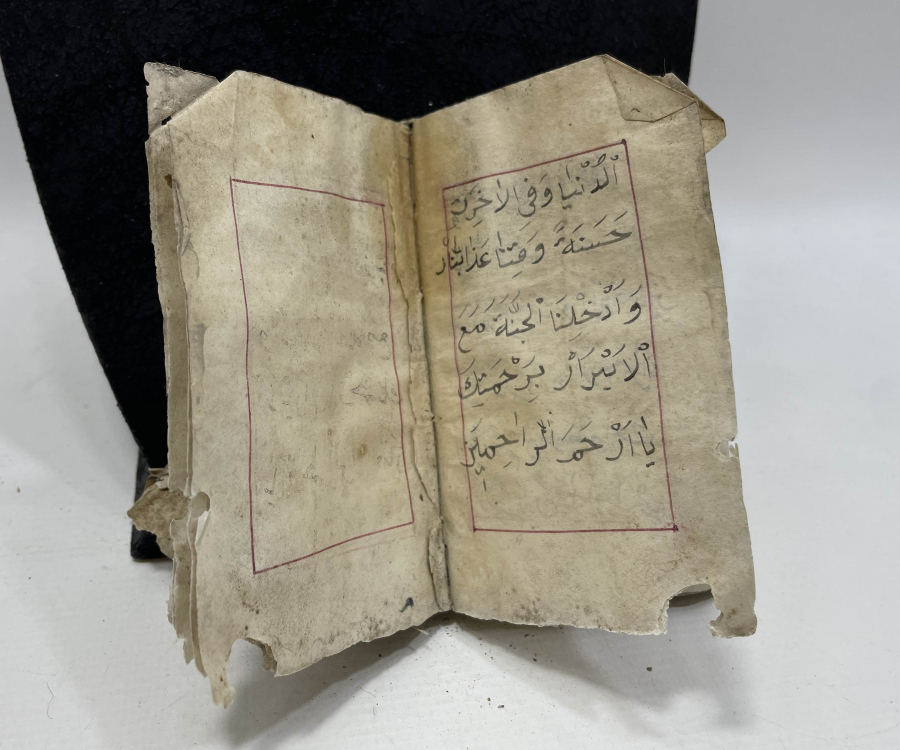 اَلدُّنْيَا وَفِي الْاٰخِرَتِ
حَسَنَةً وَقِنَا عَذَابَنَّارْ
وَاَدْخِلْنَا الْجَنَّةَ مَعَ
اْلاَبْرَارْ بِرَحْمَتِكَ
يَا اَرْحَمَ الرَّاحِمِينَ